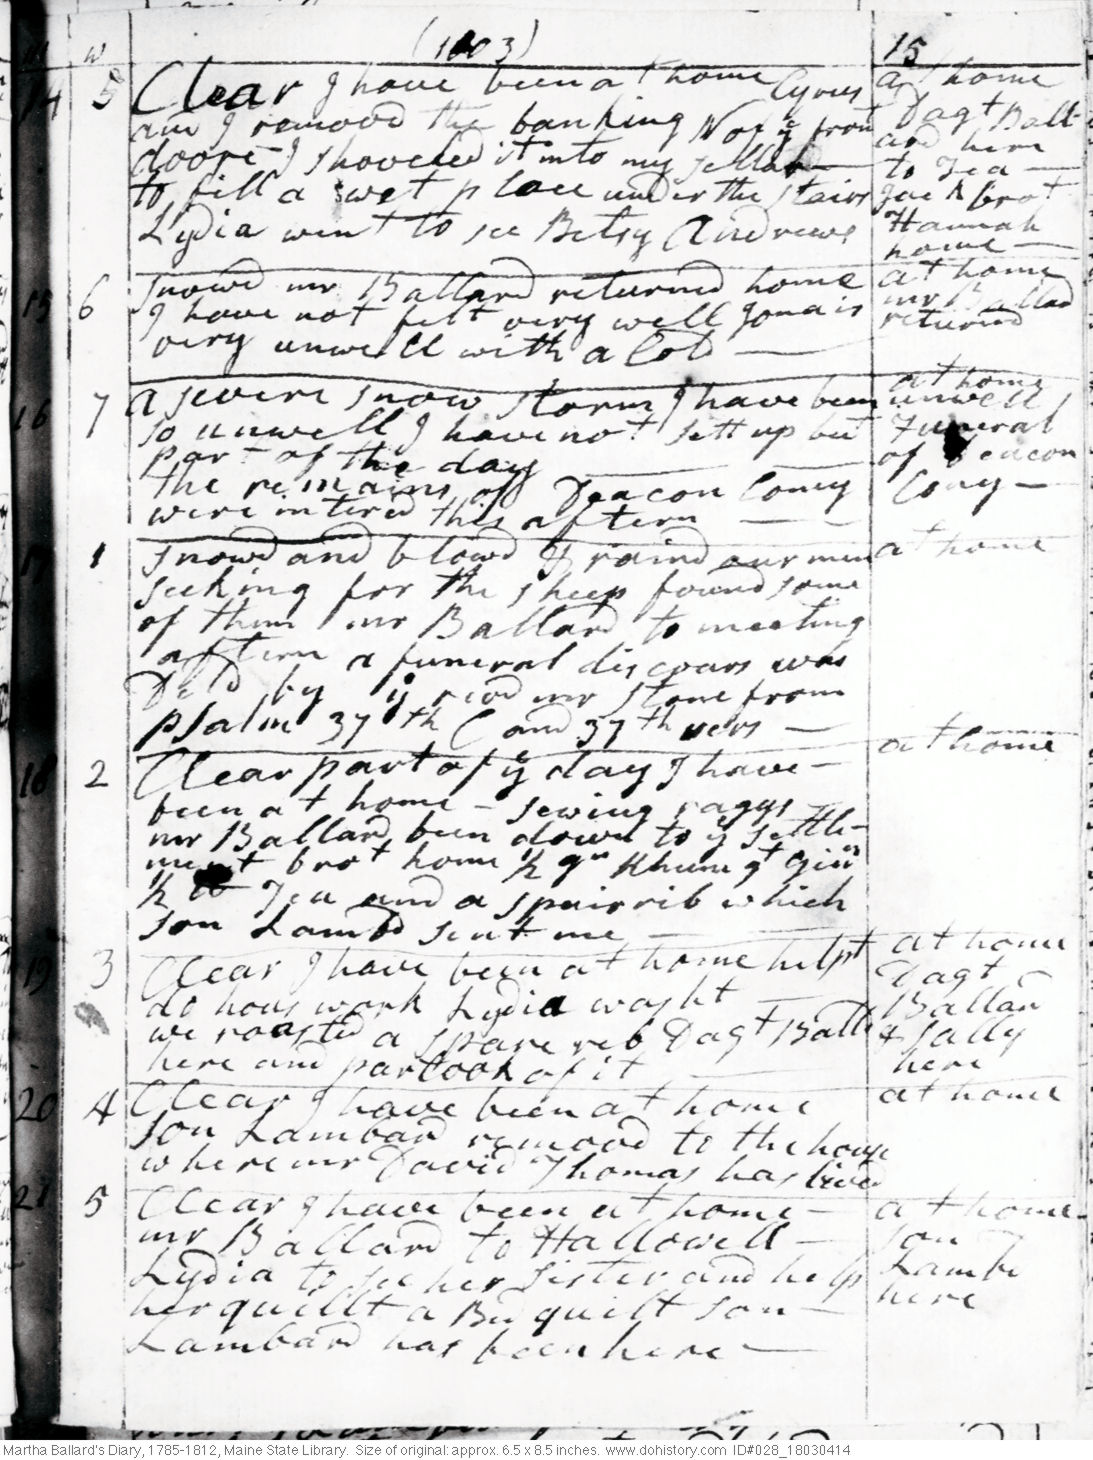 (1803)
15
M W
14 5 Clear I have been at home Cyrus
and I removd the banking Not ye front
doore I shoveled it into my sellar
to fill a wet place under the stairs
Lydia went to see Betsy Andrews
at home
Dagt Ball
and here
to Tea
Jack brot
Hannah
home
15 6 Snowd mr Ballard returned home
I have not felt very well Jona is
very unwell with a Cold
at home
mr Ballad
returnd
16 7 a severe snow storm I have been
so unwell I have not sett up but
part of the day
the remains of Deacon Coney
were intered this aftern
at home
unwell
Funeral
of Deacon
Coney
17 1 Snowd and blowd & raind our men
seeking for the sheep found some
of them mr Ballard to meeting
aftern a funeral discours was
Deld by ye revd mr Stone from
psalm 37th and 37th vers
at home
18 2 Clear part of ye day I have
been at home - sewing raggs
mr Ballard been down to ye settle-
ment brot home 1/2 gn Rhum qt ginn
1/2 lb Tea and a spairrib which
son Lambd sent me
at home
19 3 Clear I have been at home helpt
do hous work Lydia washt
we roasted a spare reb Dagt Ball
here and partook of it
at home
Dagt
Ballard
& Sally
here
20 4 Clear I have been at home
son Lambard removd to the house
where mr David Thomas has livd
at home
21 5 Clear I have been at home
mr Ballard to Hallowell
Lydia to see her sister and help
her quillt a Bed quilt son
Lambard has been here
at home
son
Lambd
here
Martha Ballard's Diary, 1785-1812, Maine State Library. Size of original: approx. 6.5 x 8.5 inches. www.dohistory.com ID#028_18030414